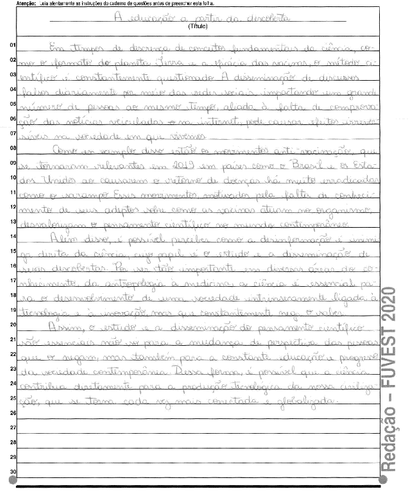 Atenção: Leia atentamente as instruções do caderno de questões antes de preencher esta folha.
A educação a partir da descoberta
(Título)
01 Em tempos de descrença de conceitos fundamentais da ciência, co-
02 mo o formato do planeta Terra e a eficácia das vacinas, o método ci-
03 entífico é constantemente questionado. A disseminação de discursos
04 falsos diariamente por meio das redes sociais, impactando um grande
05 número de pessoas ao mesmo tempo, aliada à falta de comprova-
06 ção das notícias veiculadas em internet, pode causar efeitos irrever-
07 síveis na sociedade em que vivemos.
08 Como um exemplo disso estão os movimentos anti-vacinação, que
09 se tornaram relevantes em 2019 em países como o Brasil e os Esta-
10 dos Unidos ao causarem o retorno de doenças há muito erradicadas
11 como o sarampo. Esses movimentos motivados pela falta de conheci-
12 mento de seus adeptos sobre como as vacinas atuam no organismo
13 desvalorizam o pensamento científico no mundo contemporâneo.
14 Além disso, é possível perceber como a desinformação é
15 da ciência, cujo papel é o estudo e a disseminação de
16 suas descobertas. Por ser tão importante em diversas áreas do co-
17 nhecimento, da antropologia à medicina, a ciência é essencial pa-
18 ra o desenvolvimento de uma sociedade intensamente ligada à
19 tecnologia e à inovação mas que constantemente nega o valor.
20 Assim, o estudo e a disseminação do pensamento científico
21 são essenciais não só para a mudança de perspectiva das pessoas
22 que o negam mas também para a constante educação e progresso
23 da sociedade contemporânea. Dessa forma, é possível que a ciência
24 contribua diretamente para a produção tecnológica da nossa civiliza-
25 ção, que se torna cada vez mais conectada e globalizada.
26
27
28
29
30
Redação – FUVEST 2020